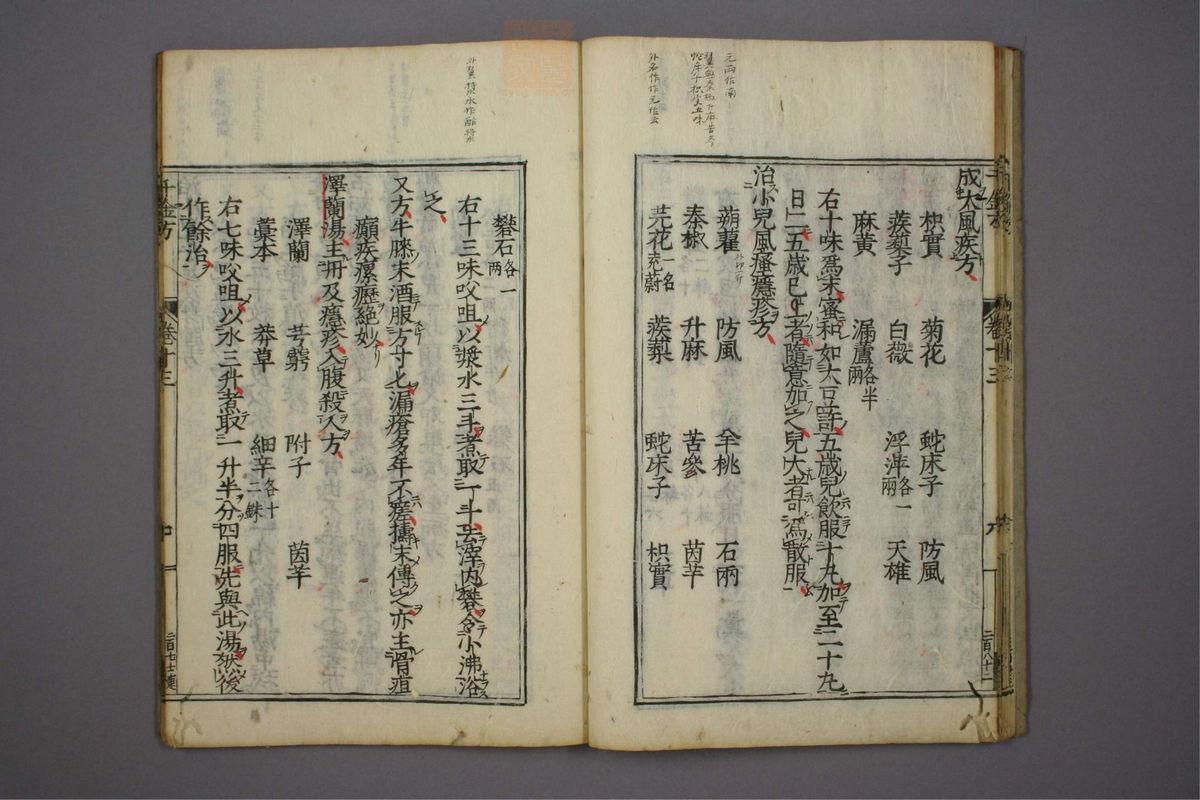 成大風疾方
枳實 菊花 蛇床子 防風
蒺蔾子 白薇 浮萍各一兩 天雄
麻黄 漏蘆各半兩
右十味爲末蜜和如大豆許五歳兒飲服十丸加至二十丸
日二五歳已上者隨意加之兒大者可爲散服
治小兒風瘙癮疹方
蒴藋 防風 羊桃 石南
秦椒 升麻 苦參 茵芋
芫花一名 蒺蔾 蛇床子 枳實
礬石各一兩
右十三味㕮咀以漿水三斗煮取一斗去滓内礬令小沸浴
之
又方牛膝末酒服方寸匕漏瘡多年不瘥擣末傅之亦主骨疽
癲疾瘰癧絶妙
澤蘭湯主丹及癮疹入腹殺人方
澤蘭 芎藭 附子 茵芋
藁本 莽草 細辛各十二銖
右七味㕮咀以水三升煮取一升半分四服先與此湯然後
作餘治
千金方